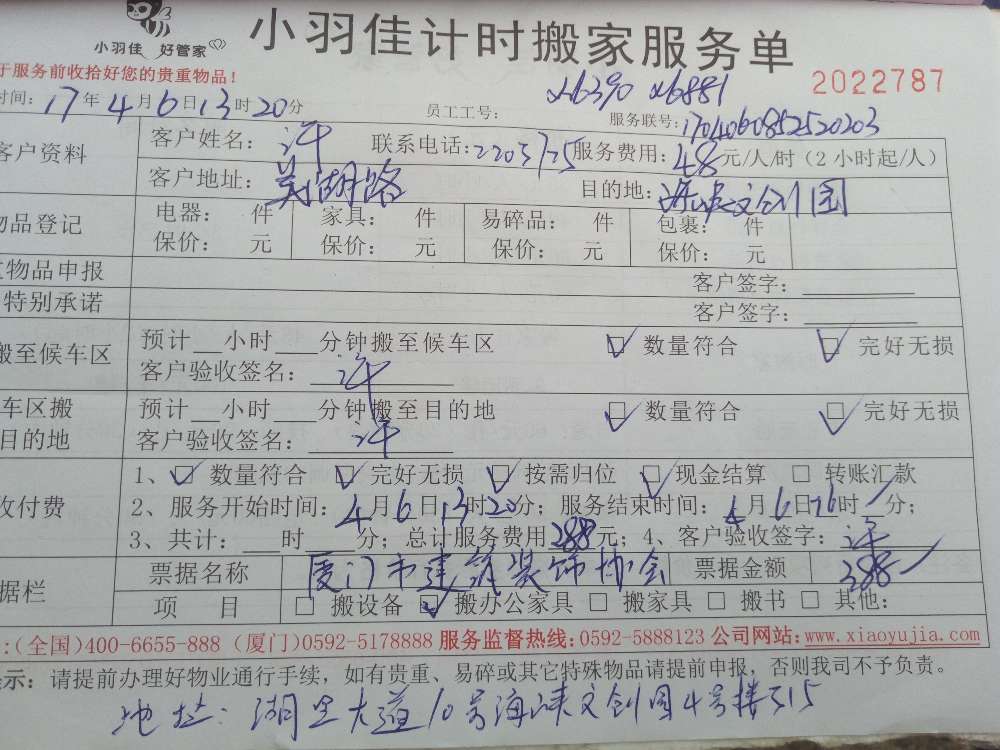 小羽佳 好管家
小羽佳计时搬家服务单
于服务前收拾好您的贵重物品！
2022787
时间：17年4月6日13时20分 员工工号： 服务联号：
客户资料 客户姓名：许 联系电话：2203725 服务费用：48元/人/时（2小时起/人）
客户地址： 目的地：海峡文创园
物品登记 电器： 件 家具： 件 易碎品： 件 包裹： 件
保价： 元 保价： 元 保价： 元 保价： 元
物品申报 客户签字：
特别承诺 客户签字：
搬至候车区 预计__小时___分钟搬至候车区 数量符合 完好无损
客户验收签名：许
车区搬 预计__小时___分钟搬至目的地 数量符合 完好无损
目的地 客户验收签名：许
1、 数量符合 完好无损 按需归位 现金结算 转账汇款
收付费 2、服务开始时间：4月6日13时20分；服务结束时间：4月6日16时/分；
3、共计：___时___分；总计服务费用288元；4、客户验收签字：许
据栏 票据名称 厦门市建筑装饰协会 票据金额 288
项 目 搬设备 搬办公家具 搬家具 搬书 其他：
：(全国)400-6655-888 (厦门)0592-5178888 服务监督热线：0592-5888123 公司网站：www.xiaoyujia.com
示：请提前办理好物业通行手续，如有贵重、易碎或其它特殊物品请提前申报，否则我司不予负责。
地址：湖里大道10号海峡文创园4号楼315